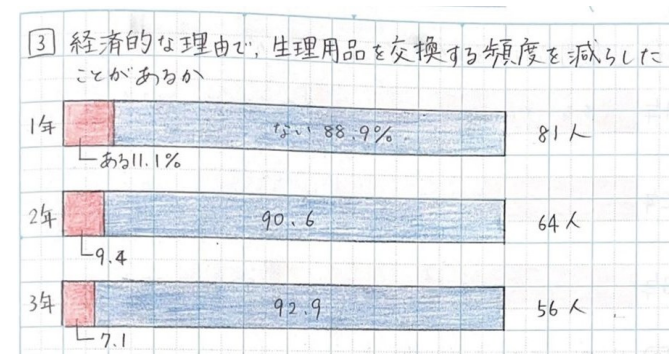 3 経済的な理由で、生理用品を交換する頻度を減らした
ことがあるか
1年 ない 88.9% 81人
ある11.1%
2年 90.6 64人
9.4
3年 92.9 56人
7.1